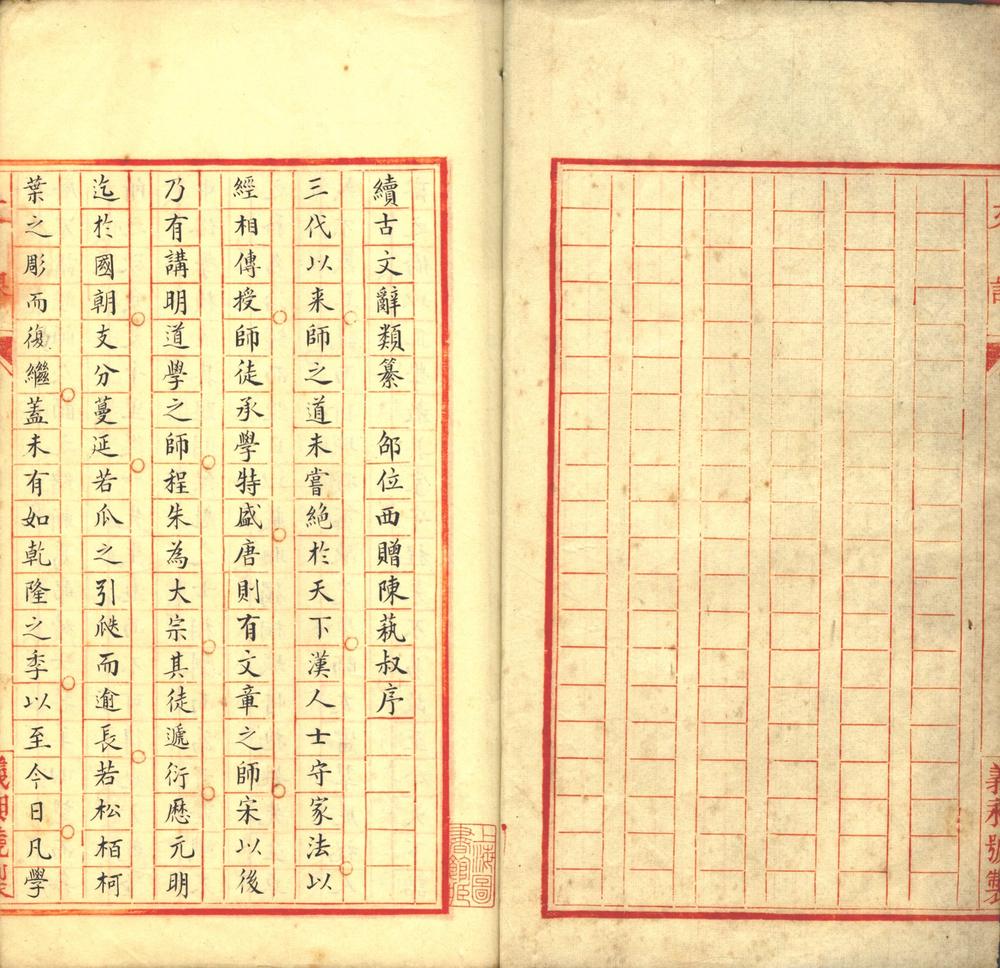 義和號製
上海圖
書館藏
續古文辭類纂　邵位西贈陳蓺叔序
三代以来師之道未嘗絶於天下漢人士守家法以
經相傳授師徒承學特盛唐則有文章之師宋以後
乃有講明道學之師程朱為大宗其徒遞衍歷元明
迄於國朝支分蔓延若瓜之引瓞而逾長若松栢柯
葉之彫而復繼蓋未有如乾隆之季以至今日凡學